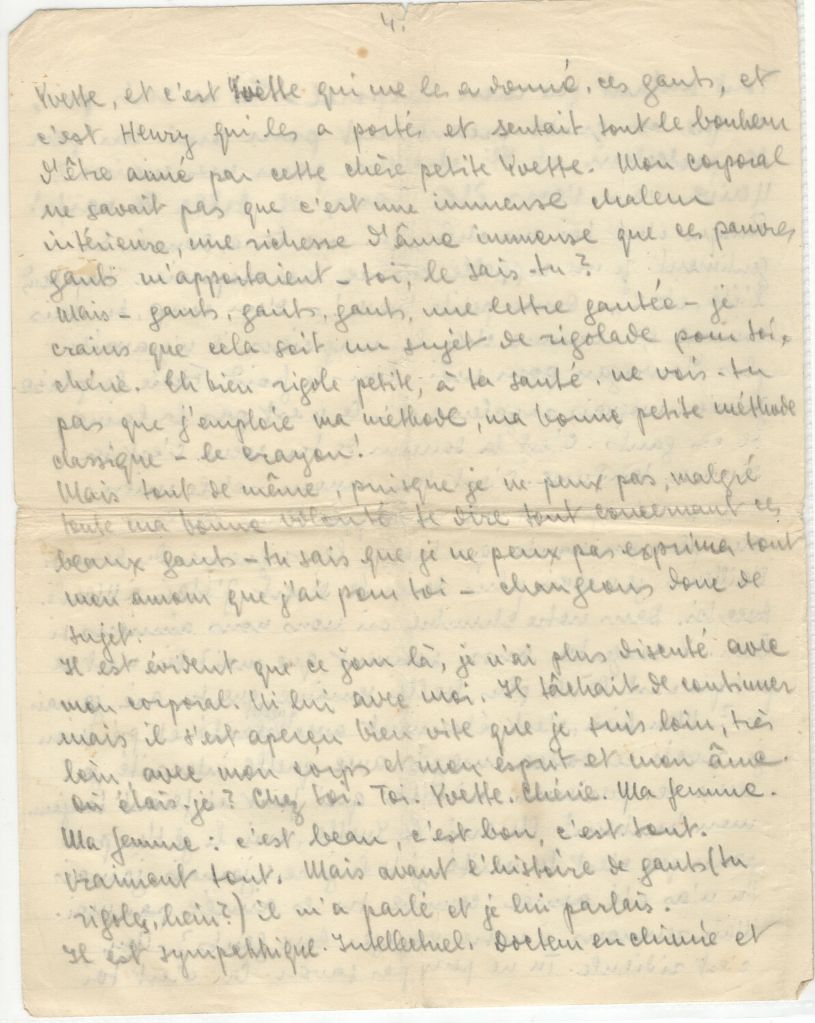 4.
Yvette, et c'est Yvette qui me les a donné, ces gants, et
c'est Henry qui les a portés et sentait tout le bonheur
d'être aimé par cette chère petite Yvette. Mon corporal
ne savait pas que c'est une immense chaleur
intérieure, une richesse d'âme immense que ces pauvres
gants m'apportaient - toi, le sais-tu?
Mais - gants, gants, gants, une lettre gantée - je
crains que cela soit un sujet de rigolade pour toi,
chérie. Eh bien rigole petite, à ta santé. ne vois-tu
pas que j'emploie ma méthode, ma bonne petite méthode
classique - le crayon!
Mais tout de même, puisque je ne peux pas, malgré
toute ma bonne volonté te dire tout concernant ces
beaux gants - tu sais que je ne peux pas exprimer tout
mon amour que j'ai pour toi - changeons donc de
sujet.
Il est évident que ce jour là, je n'ai plus discuté avec
mon corporal. Ni lui avec moi. Il tâchait de continuer
mais il s'est aperçu bien vite que je suis loin, très
loin. avec mon corps et mon esprit et mon âme.
Où étais-je? Chez toi. Toi. Yvette. Chérie. Ma femme.
Ma femme: c'est beau, c'est bon, c'est tout.
Vraiment tout. Mais avant l'histoire de gants (tu
rigoles, hein?) il m'a parlé et je lui parlais.
Il est sympathique. Intellectuel. Docteur en chimie et